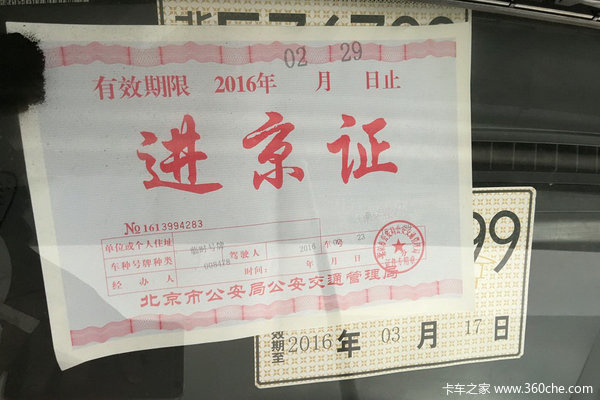 02 29
有效期限 2016年 月 日止
进京证
No 1613994283
单位或个人住址
车种号牌种类 临时号牌 驾驶人 2016 年 02 23
经办人 008478 时间: 年 月 日
北京市公安局公安交通管理局
99
效期至 2016 年 03 月 17 日
卡车之家 www.360che.com